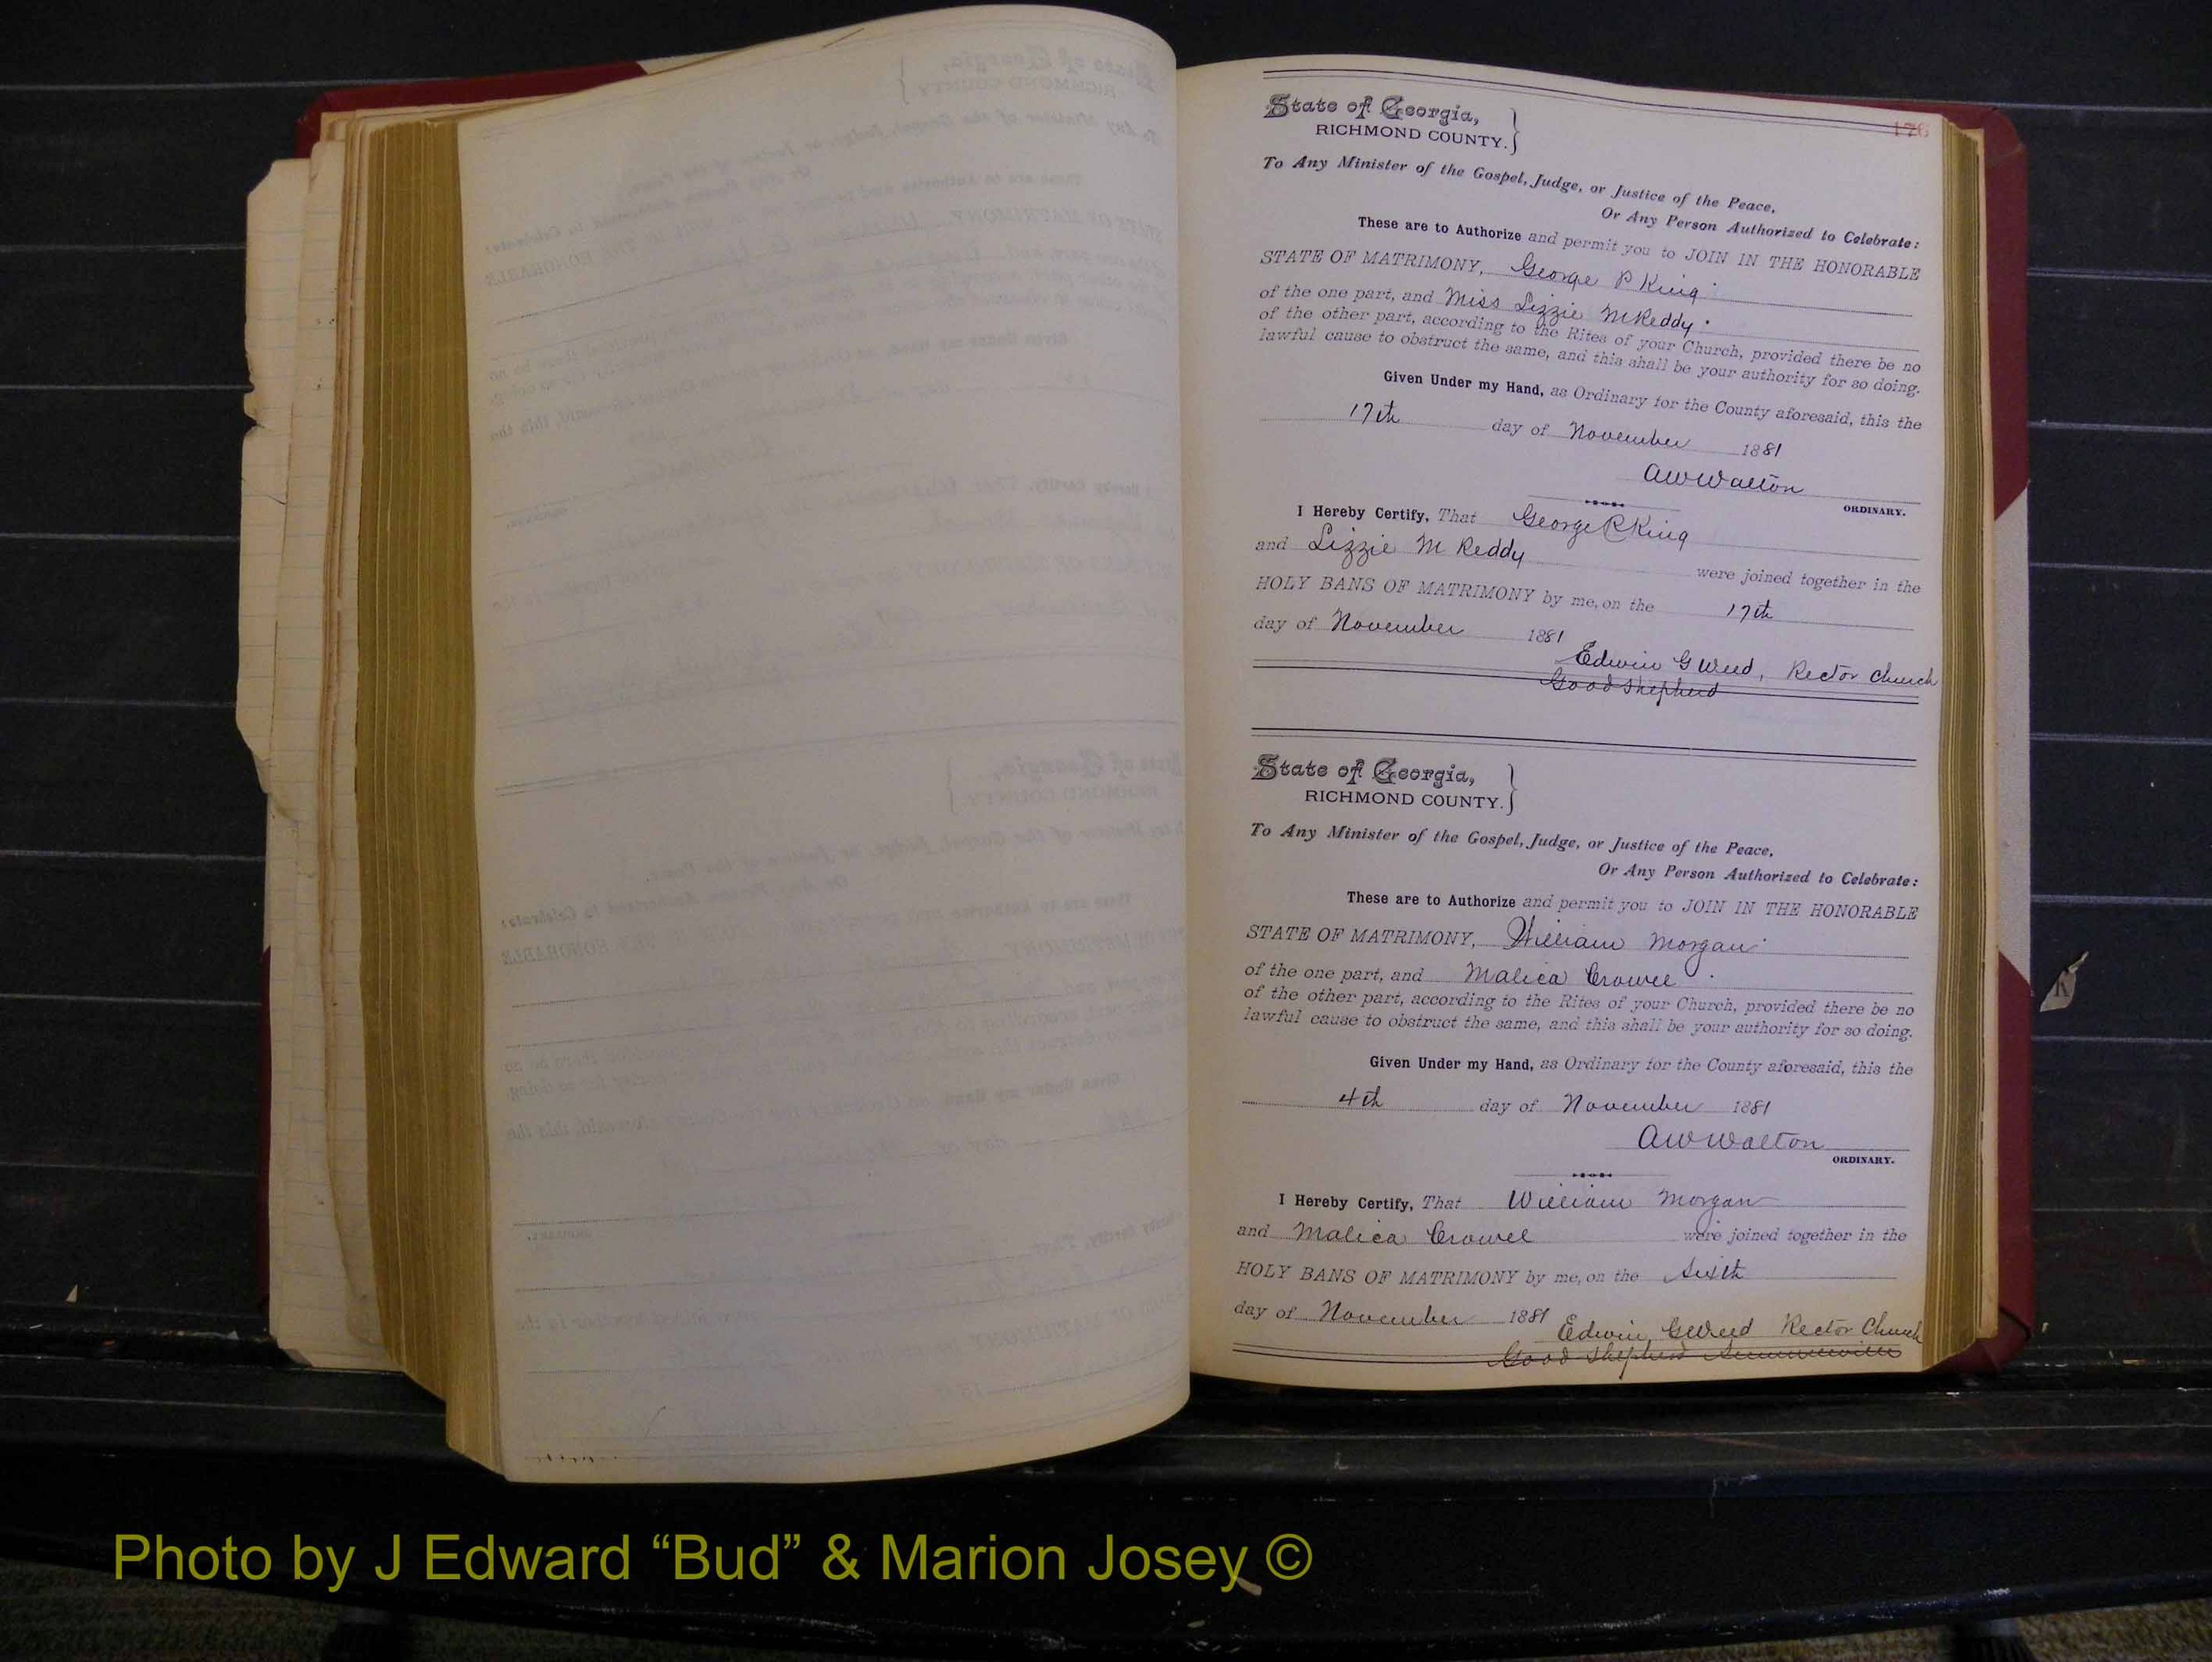 176
State of Georgia,
RICHMOND COUNTY.
To Any Minister of the Gospel, Judge, or Justice of the Peace,
Or Any Person Authorized to Celebrate:
These are to Authorize and permit you to JOIN IN THE HONORABLE
STATE OF MATRIMONY, George P King
of the one part, and Miss Lizzie M Reddy
of the other part, according to the Rites of your Church, provided there be no
lawful cause to obstruct the same, and this shall be your authority for so doing.
Given Under my Hand, as Ordinary for the County aforesaid, this the
17th day of November 1881
AW Walton
ORDINARY.
I Hereby Certify, That George R King
and Lizzie M Reddy were joined together in the
HOLY BANS OF MATRIMONY by me, on the 17th
day of November 1881
Edwin G Weed, Rector Church
Good Shepherd
State of Georgia,
RICHMOND COUNTY.
To Any Minister of the Gospel, Judge, or Justice of the Peace,
Or Any Person Authorized to Celebrate:
These are to Authorize and permit you to JOIN IN THE HONORABLE
STATE OF MATRIMONY, William Morgan
of the one part, and Malica Crowel
of the other part, according to the Rites of your Church, provided there be no
lawful cause to obstruct the same, and this shall be your authority for so doing.
Given Under my Hand, as Ordinary for the County aforesaid, this the
4th day of November 1881
AW Walton
ORDINARY.
I Hereby Certify, That William Morgan
and Malica Crowel were joined together in the
HOLY BANS OF MATRIMONY by me, on the Sixth
day of November 1881
Edwin G Weed Rector Church
Good Shepherd Summerville
Photo by J Edward “Bud” & Marion Josey ©